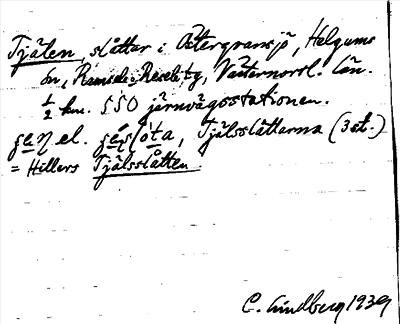 Tjälen, slåttar i Östergransjö, Helgums
sn, Ramsele o. Resele tg, Västernorrl. län.
½ km. SSO järnvägsstationen.
el. Tjälsslåttarna (3 st.)
= Hillers Tjälsslåtten.
C. Lindberg 1939